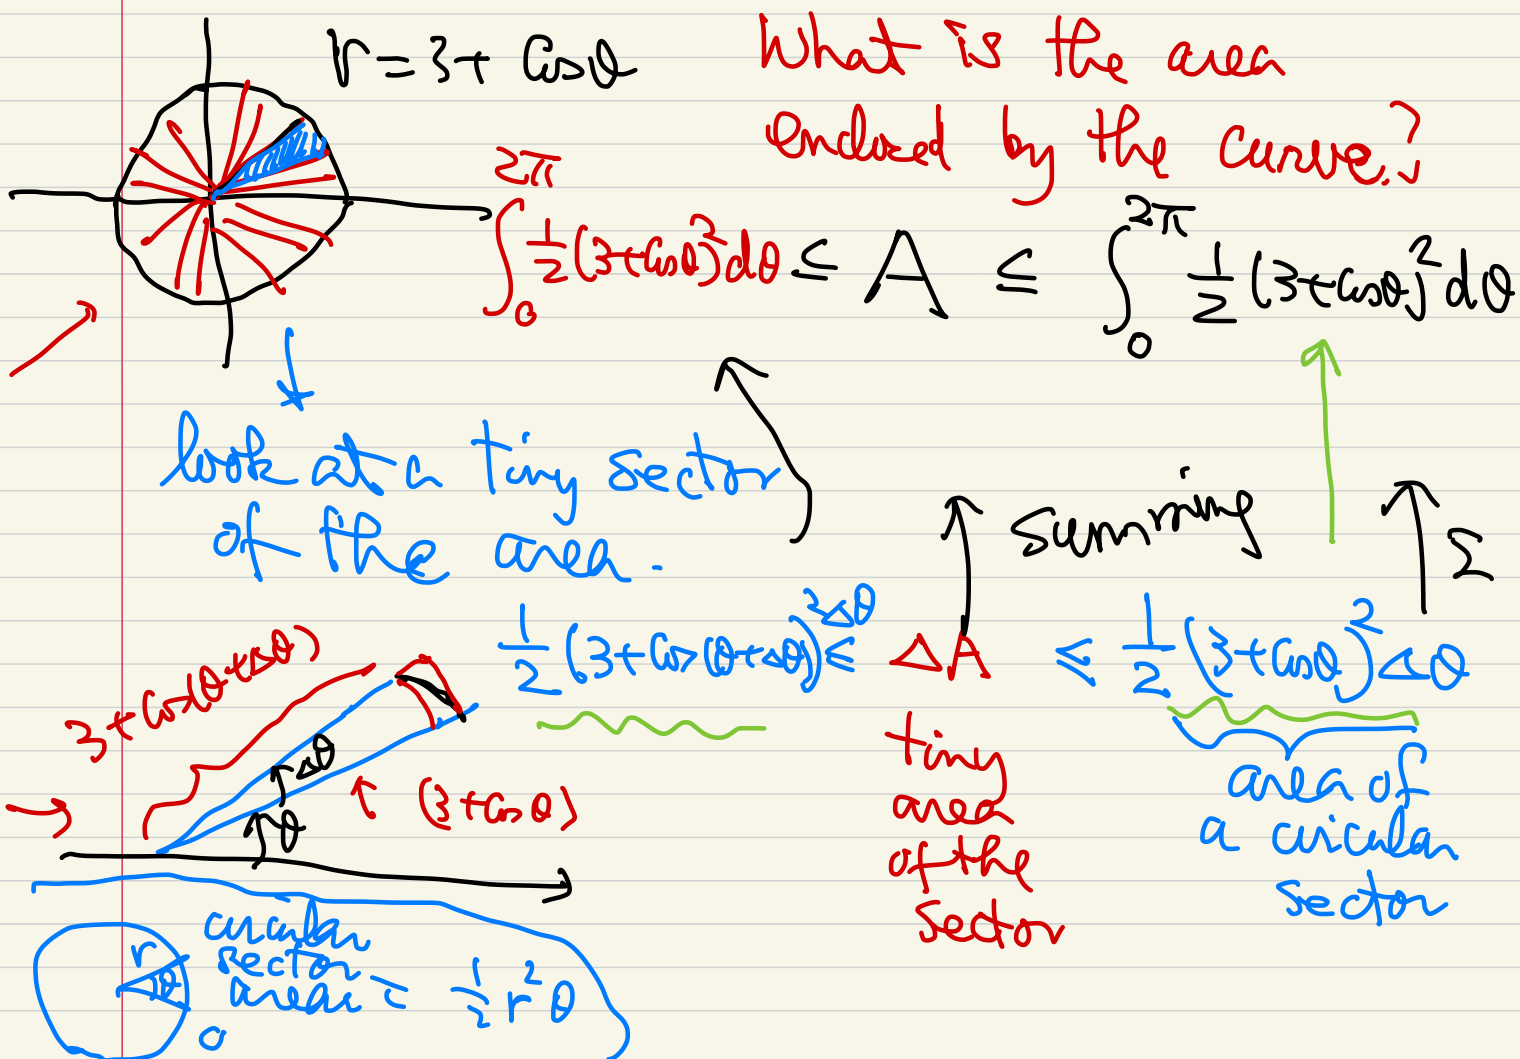 r = 3 + cosθ
What is the area
enclosed by the curve?
∫₀^{2π} ½(3+cosθ)² dθ ≤ A ≤ ∫₀^{2π} ½(3+cosθ)² dθ
look at a tiny sector
of the area.
summing
Σ
½(3+cos(θ+Δθ))² Δθ ≤ ΔA ≤ ½(3+cosθ)² Δθ
3+cos(θ+Δθ)
Δθ
(3+cosθ)
θ
tiny
area
of the
sector
area of
a circular
sector
r
θ
circular
sector
area = ½ r² θ